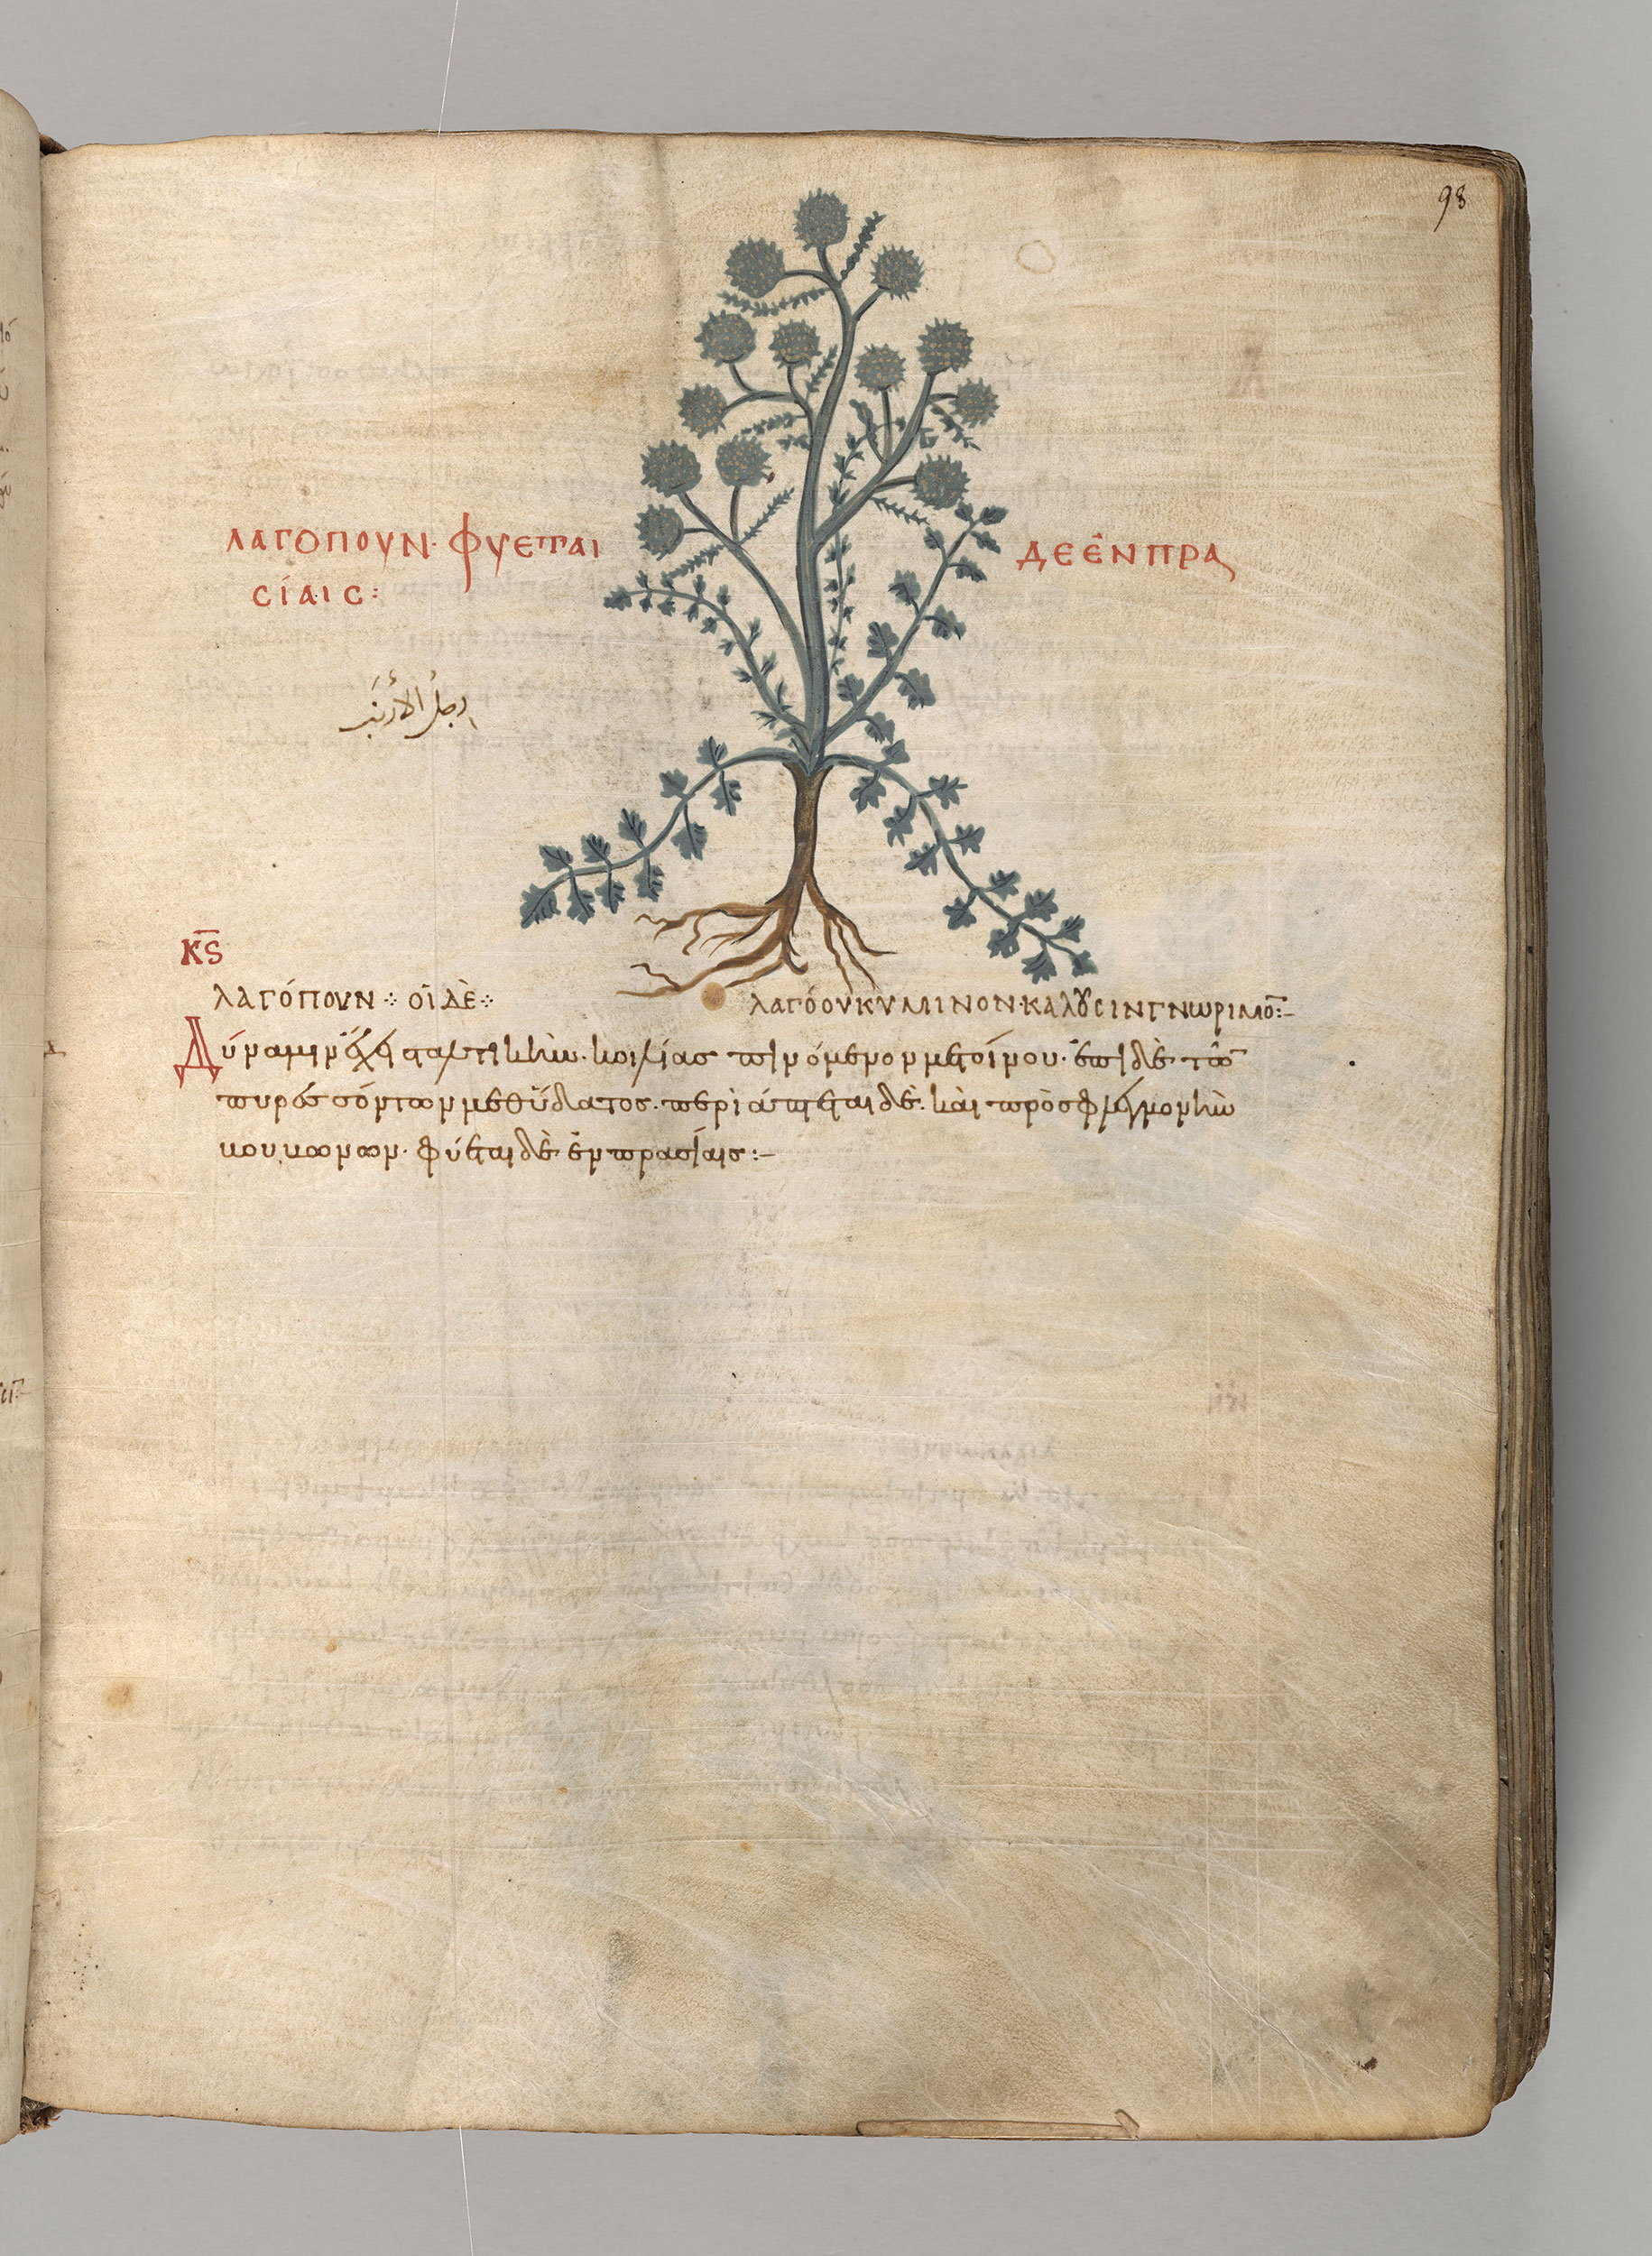 98
ΛΑΓΟΠΟΥΝ· ΦΥΕΤΑΙ ΔΕ ἘΝ ΠΡΑ
CΊΑΙC:
رجل الأرنب
ΚϚ
ΛΑΓΌΠΟΥΝ ⁘ ΟἹ ΔῈ ⁘ ΛΑΓΌΟΥ ΚΥΜΙΝΟΝ· ΚΑΛΟΥCΙΝ ΓΝΩΡΙΜΟ̅:–
Δύναμιν ἔχει σταλτικὴν· κοιλίας πινόμενον μετ οίνου· ἐπὶ δὲ τῶ̅
πυρεσσόντων μεθ ὕδατος· περιάπτεται δὲ· καὶ πρὸς φλεγμονὴν
κουκωνων· φύεται δὲ ἐν πρασίαις:–